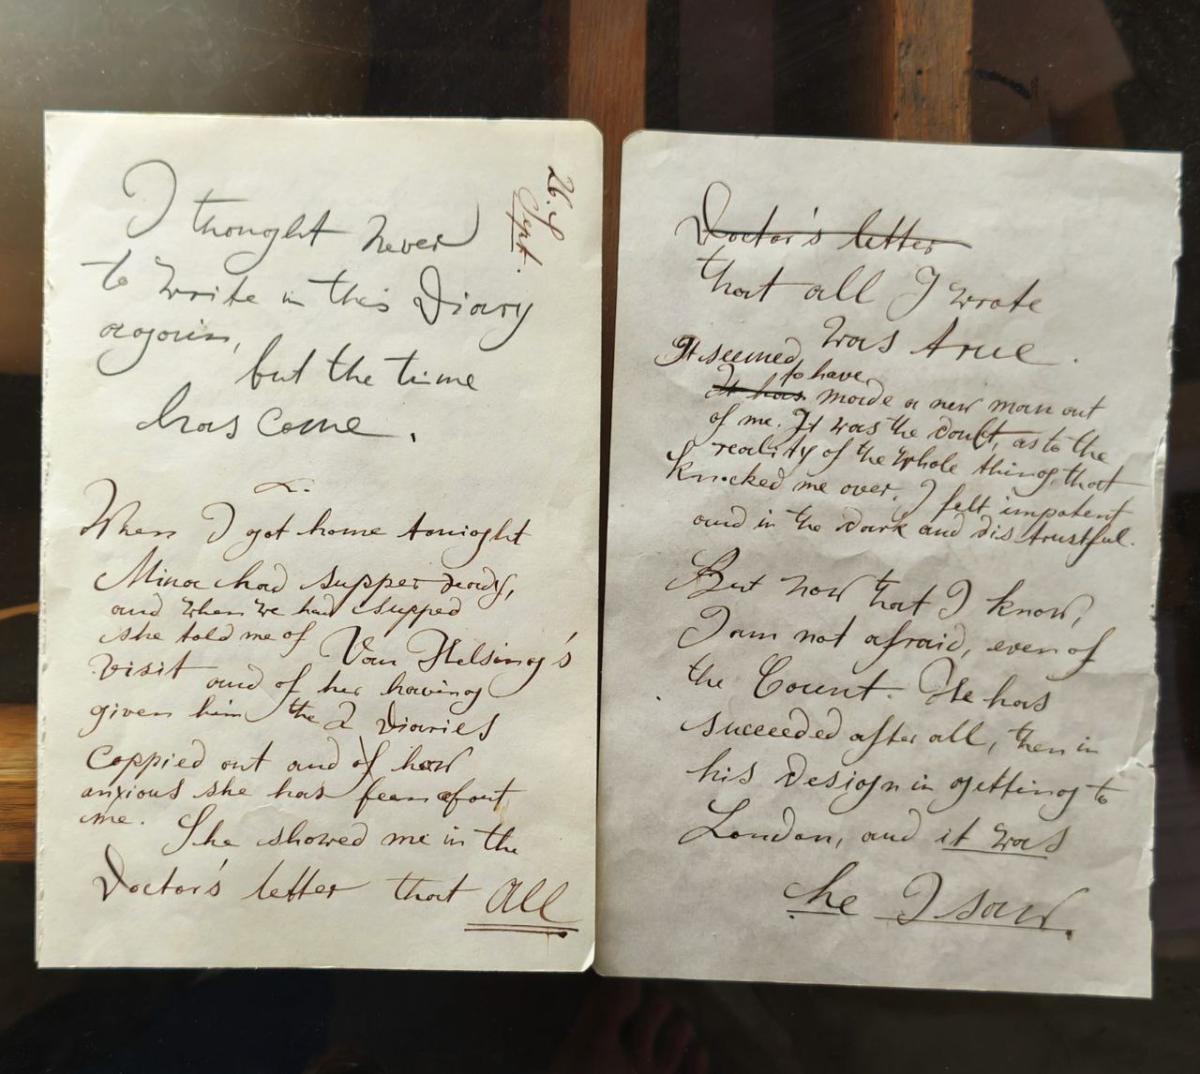 26. S
Sept.
I thought never
to write in this Diary
again,
but the time
has come.
When I got home tonight
Mina had supper ready,
and when we had supped
she told me of Van Helsing's
visit and of her having
given him the 2 Diaries
coppied out and of how
anxious she has been about
me. She showed me in the
Doctor's letter that All
Doctor's letter
that all I wrote
was true.
It seemed
to have
It has made a new man out
of me. It was the doubt, as to the
reality of the whole thing, that
knocked me over. I felt impotent
and in the dark and distrustful.
But now that I know,
I am not afraid, even of
the Count. He has
succeeded after all, then in
his design in getting to
London, and it was
he I saw.